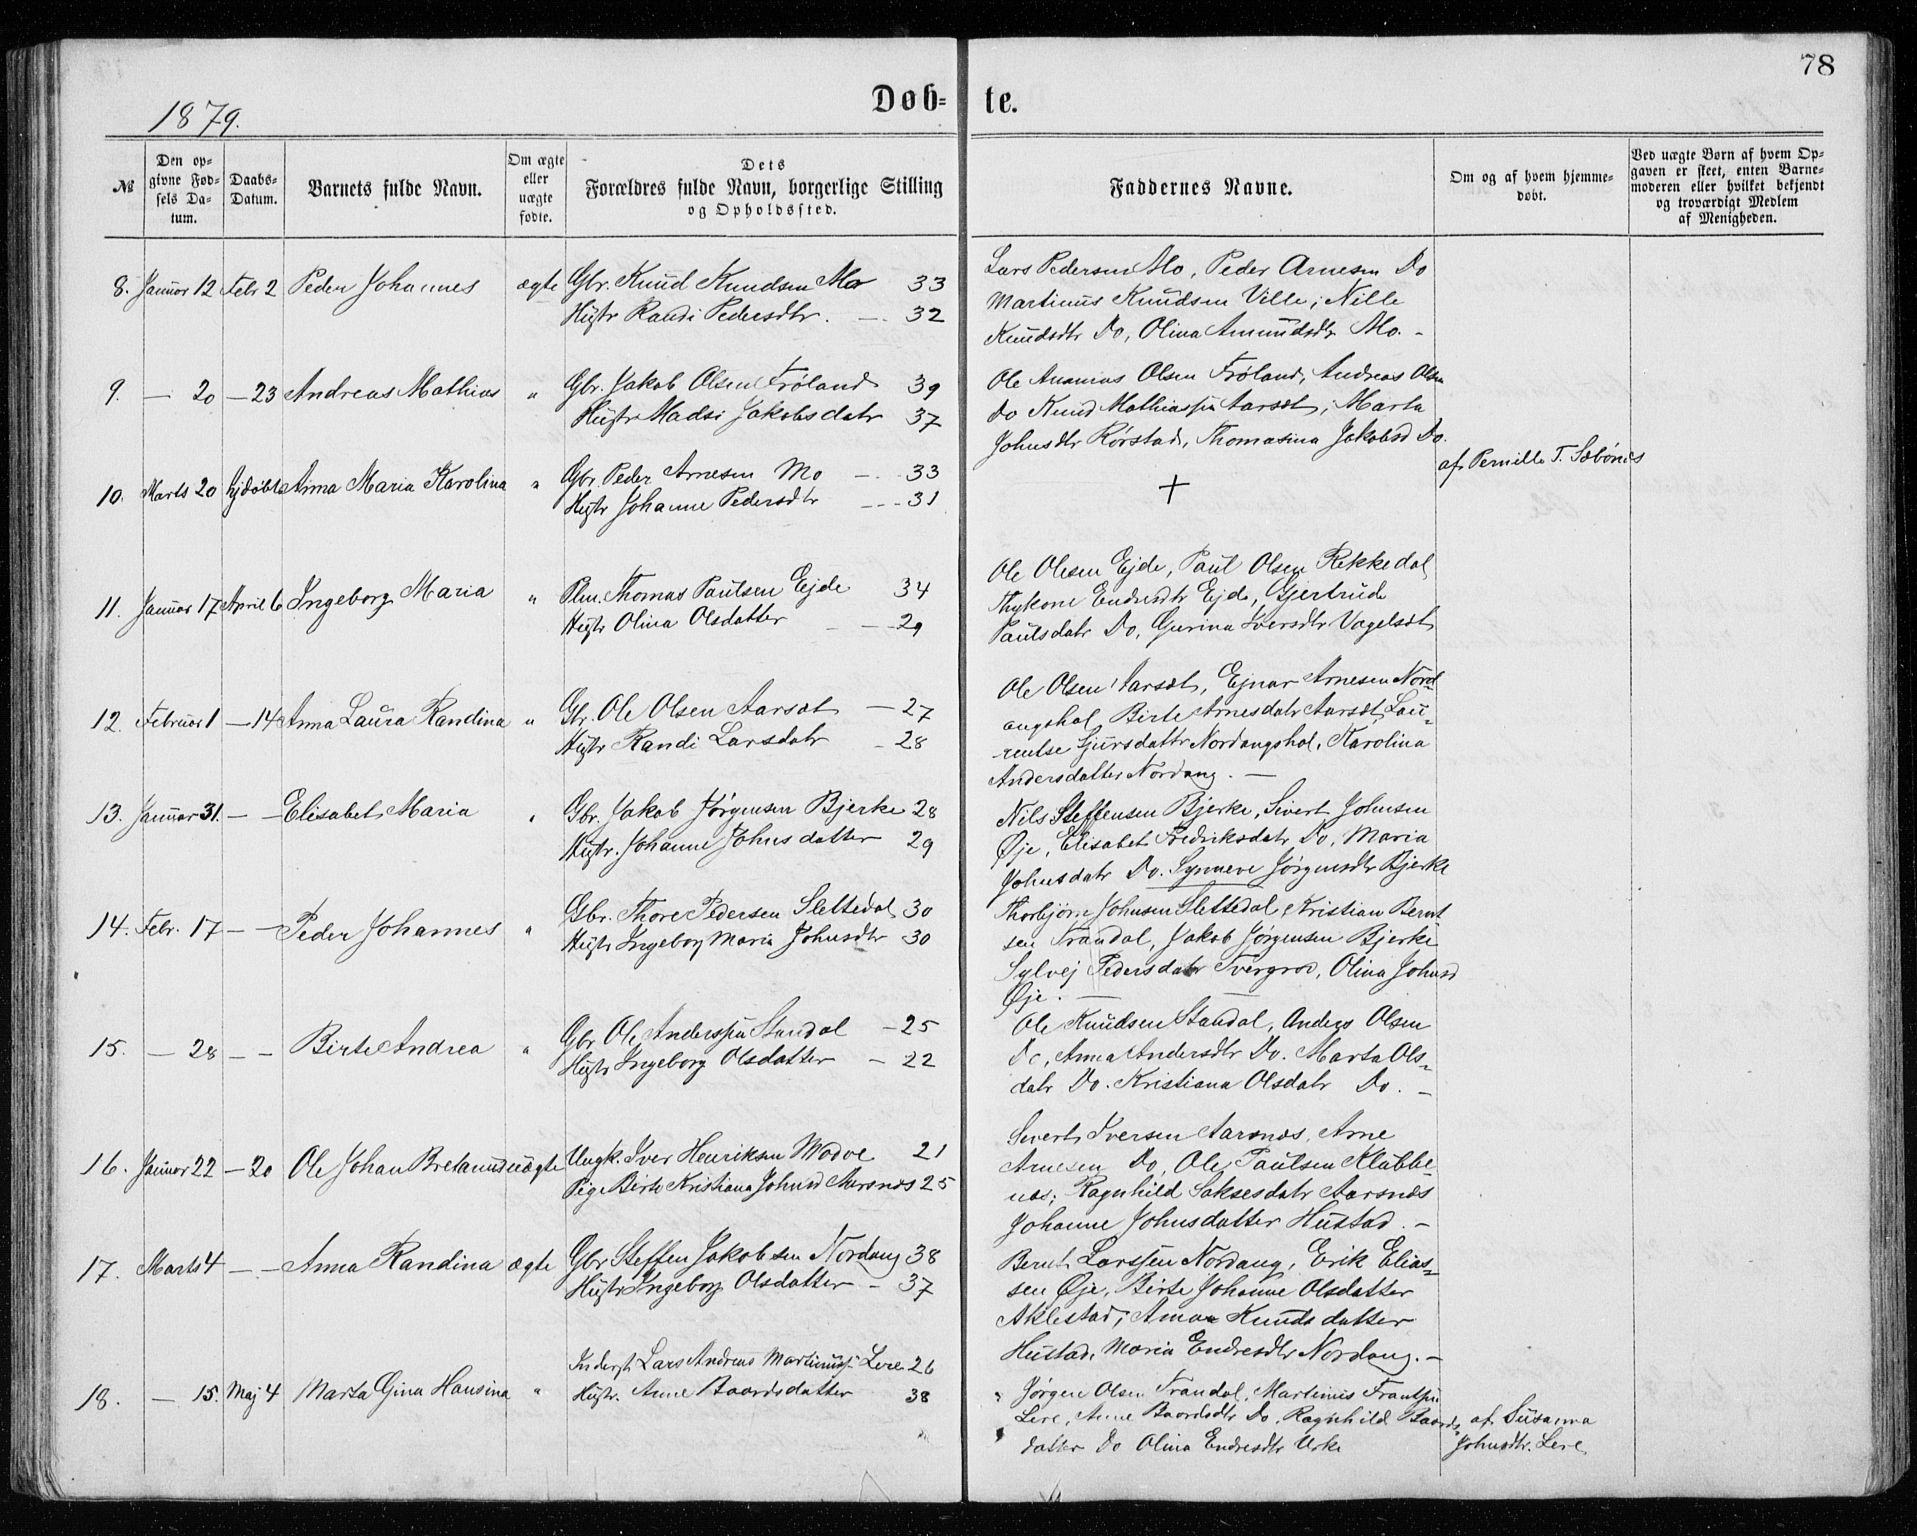 78
1879.
Døb-te.
№
Den opgivne Fødsels Datum.
Daabs-Datum.
Barnets fulde Navn.
Om ægte eller uægte fødte.
Dets Forældres fulde Navn, borgerlige Stilling og Opholdssted.
Faddernes Navne.
Om og af hvem hjemmedøbt.
Ved uægte Børn af hvem Opgaven er skeet, enten Barnemoderen eller hvilket bekjendt og troværdigt Medlem af Menigheden.
8. Januar 12 Febr 2 Peder Johannes ægte Gbr. Knud Knudsen Mo 33
Hustr Randi Pedersdtr. — 32
Lars Pedersen Mo, Peder Arnesen Do
Martinus Knudsen Ville, Nille
Knudsdtr Do, Olina Amundsdtr Mo. -
9. — 20 — 23 Andreas Mathias " Gbr. Jakob Olsen Frøland 39
Hustr Madsi Jakobsdatr 37
Ole Ananias Olsen Frøland, Andreas Olsen
Do Knud Mathiassen Aarsæt, Marta
Johnsdtr Rørstad, Thomasina Jakobsd Do.
10. Marts 20 hjdøbt Anna Maria Karolina " Gbr. Peder Arnesen Mo — 33
Hustr Johanne Pedersdtr --- 31
+
af Pernille T. Sæbønes
11. Januar 17 April 6 Ingeborg Maria " Plm. Thomas Paulsen Ejde 34
Hustr Olina Olsdatter — 29
Ole Olesen Ejde, Paul Olsen Rekkedal
Thykone Endresdtr Ejde, Gjertrude
Paulsdatr Do, Gurina Iversdtr Vagelsæt
12. Februar 1 — 14 Anna Laura Randina " Gbr. Ole Olsen Aarsæt — 27
Hustr Randi Larsdatr - 28
Ole Olsen Aarsæt, Ejnar Arnesen Nord-
angshol, Birte Arnesdatr Aarsæt, Lau-
rentse Sjursdattr Nordangshol, Karolina
Andersdatter Nordang. —
13. Januar 31. — — Elisabet Maria " Gbr. Jakob Jørgensen Bjerke 28
Hustr. Johanne Johnsdatter 29
Nils Steffensen Bjerke, Sivert Johnsen
Øje, Elisabet Fredriksdatr Do, Maria
Johnsdatr Do. Synneve Jørgensdtr Bjerke
14. Febr. 17 — — Peder Johannes " Gbr. Thore Pedersen Slettedal 30
Hustr Ingeborg Maria Johnsdtr 30
Thorbjørn Johnsen Slettedal, Kristian Bernt
sen Trandal, Jakob Jørgensen Bjerke
Sylvej Pedersdatr Tvergrov, Olina Johnsd
Øje. —
15. — 28 — — Birte Andrea " Gbr. Ole Anderssen Standal — 25
Hustr Ingeborg Olsdatter — 22
Ole Knudsen Standal, Anders Olsen
Do, Anna Andersdtr Do. Marta Ols-
datr Do. Kristiana Olsdatr Do. —
16. Januar 22 — 20 Ole Johan Bretanus uægte Ungk. Iver Henriksen Modve 21
Pige Berte Kristiana Johnsd Aarsnæs 25
Sivert Iversen Aarsnæs, Arne
Arnesen Do, Ole Paulsen Klubbe-
næs; Ragnhild Saksesdatr Aarsnæs
Johanne Johnsdatter Hustad. —
17. Marts 4 — — Anna Randina ægte Gbr Steffen Jakobsen Nordang 38
Hustr Ingeborg Olsdatter — 37
Bernt Larssen Nordang, Erik Elias-
sen Øje, Birte Johanne Olsdatter
Aklestad, Anna Knudsdatter
Hustad, Maria Endresdtr Nordang. —
18. — 15. Maj 4 Marta Gina Hansina " Inderst. Lars Andreas Martinuss. Lere 26
Hustr. Anne Baardsdatter 38
Jørgen Olsen Trandal, Martinus Frantsen
Lere, Anne Baardsdtr Do, Ragnhild Baards-
datter Do Olina Endresdtr Urke
af Susanna
Johnsdtr. Lere